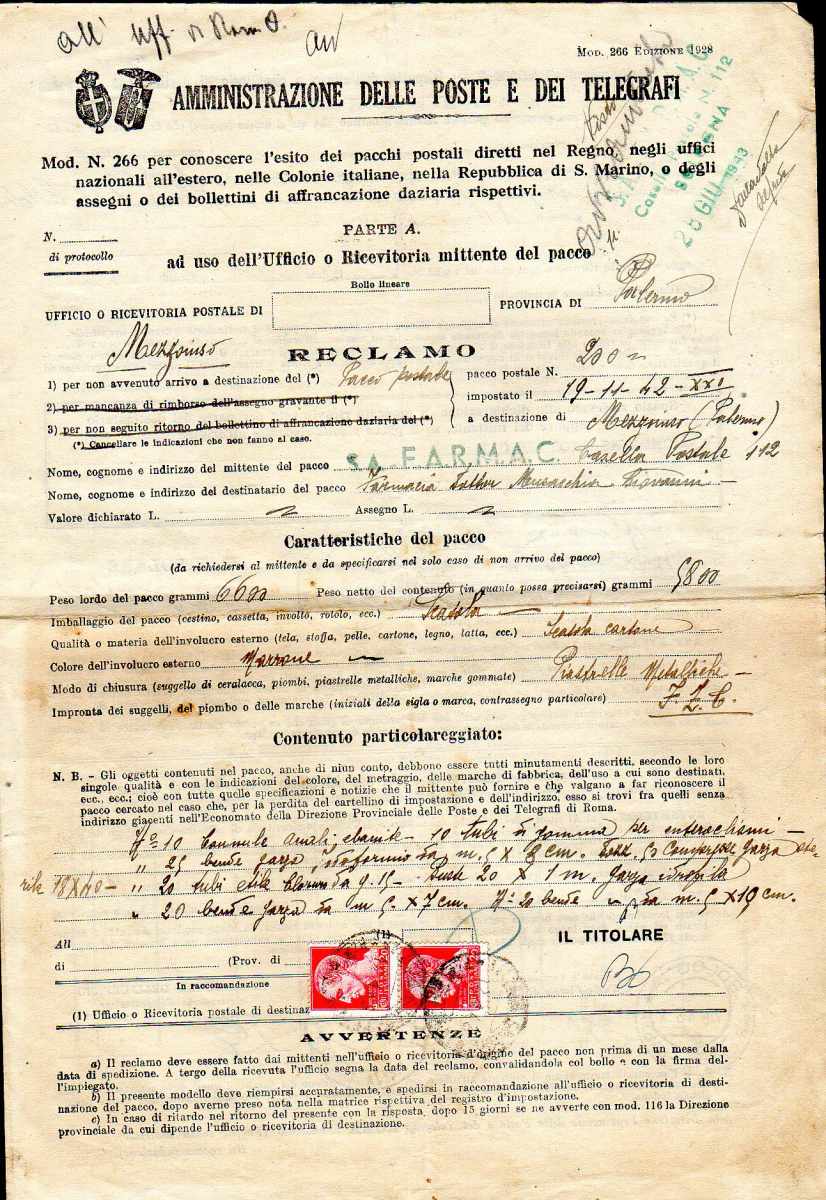 all' Uff. di Roma O.
MOD. 266 EDIZIONE 1928
AMMINISTRAZIONE DELLE POSTE E DEI TELEGRAFI
S.A.F.A.R.M.A.C.
Casella Postale N. 112
BOLOGNA
25 GIU. 1943
Mod. N. 266 per conoscere l'esito dei pacchi postali diretti nel Regno, negli uffici
nazionali all'estero, nelle Colonie italiane, nella Repubblica di S. Marino, o degli
assegni o dei bollettini di affrancazione daziaria rispettivi.
N.
di protocollo
PARTE A.
ad uso dell'Ufficio o Ricevitoria mittente del pacco
Bollo lineare
UFFICIO O RICEVITORIA POSTALE DI
PROVINCIA DI Palermo
Mezzoiuso
RECLAMO
1) per non avvenuto arrivo a destinazione del (*) Pacco postale
2) per mancanza di rimborso dell'assegno gravante il (*)
3) per non seguito ritorno del bollettino di affrancazione daziaria del (*)
(*) Cancellare le indicazioni che non fanno al caso.
pacco postale N. 200
impostato il 19-11-42-XXI
a destinazione di Mezzoiuso (Palermo)
Nome, cognome e indirizzo del mittente del pacco S.A. F.A.R.M.A.C. Casella Postale 112
Nome, cognome e indirizzo del destinatario del pacco Farmacia Dottor Giovanni
Valore dichiarato L. Assegno L.
Caratteristiche del pacco
(da richiedersi al mittente e da specificarsi nel solo caso di non arrivo del pacco)
Peso lordo del pacco grammi 6600 Peso netto del contenuto (in quanto possa precisarsi) grammi 5800
Imballaggio del pacco (cestino, cassetta, involto, rotolo, ecc.) Scatola
Qualità o materia dell'involucro esterno (tela, stoffa, pelle, cartone, legno, latta, ecc.) Scatola cartone
Colore dell'involucro esterno Marrone
Modo di chiusura (suggello di ceralacca, piombi, piastrelle metalliche, marche gommate) Piastrelle Metalliche
Impronta dei suggelli, del piombo o delle marche (iniziali della sigla o marca, contrassegno particolare)
Contenuto particolareggiato:
N. B. - Gli oggetti contenuti nel pacco, anche di niun conto, debbono essere tutti minutamente descritti, secondo le loro
singole qualità e con le indicazioni del colore, del metraggio, delle marche di fabbrica, dell'uso a cui sono destinati,
ecc., ecc.; cioè con tutte quelle specificazioni e notizie che il mittente può fornire e che valgano a far riconoscere il
pacco cercato nel caso che, per la perdita del cartellino di impostazione e dell'indirizzo, esso si trovi fra quelli senza
indirizzo giacenti nell'Economato della Direzione Provinciale delle Poste e dei Telegrafi di Roma.
N° 10 Cannule anali, ebanite - 10 tubi di gomma per enteroclismi -
" 25 bende garza, idoformio da m. 5 X 8 cm. 50 Compresse garza ste-
rile 18X40 - " 20 tubi etile cloruro da g. 15 - Buste 20 X 1 m. garza idrofila
" 20 bende garza da m 5. X 7 cm. N° 20 bende " da m. 5 X 10 cm.
All
di (Prov. di
IL TITOLARE
In raccomandazione
(1) Ufficio o Ricevitoria postale di destinaz
AVVERTENZE
a) Il reclamo deve essere fatto dai mittenti nell'ufficio o ricevitoria d'origine del pacco non prima di un mese dalla
data di spedizione. A tergo della ricevuta l'ufficio segna la data del reclamo, convalidandola col bollo e con la firma del-
l'impiegato.
b) Il presente modello deve riempirsi accuratamente, e spedirsi in raccomandazione all'ufficio o ricevitoria di desti-
nazione del pacco, dopo averne preso nota nella matrice rispettiva del registro d'impostazione.
c) In caso di ritardo nel ritorno del presente con la risposta, dopo 15 giorni se ne avverte con mod. 116 la Direzione
provinciale da cui dipende l'ufficio o ricevitoria di destinazione.